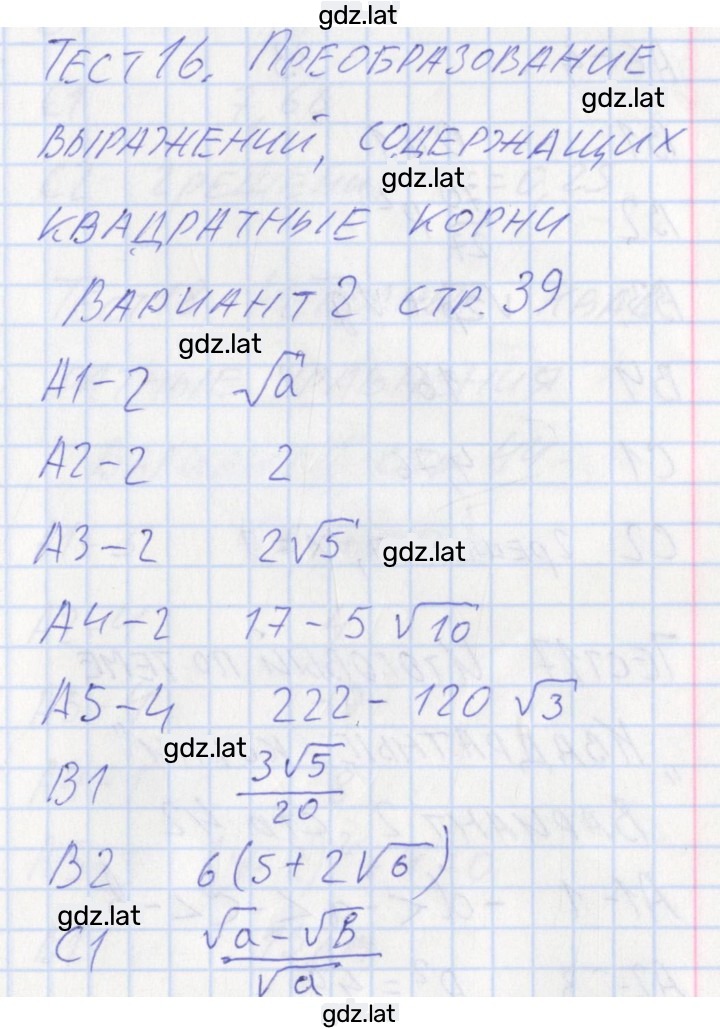 gdz.lat
ТЕСТ 16. ПРЕОБРАЗОВАНИЕ
gdz.lat
ВЫРАЖЕНИЙ, СОДЕРЖАЩИХ
gdz.lat
КВАДРАТНЫЕ КОРНИ
ВАРИАНТ 2 СТР. 39
gdz.lat
А1-2 √a
А2-2 2
А3-2 2√5
gdz.lat
А4-2 17-5√10
А5-4 222-120√3
gdz.lat
В1 3√5/20
В2 6(5+2√6)
gdz.lat
С1 √a-√b/√a
gdz.lat